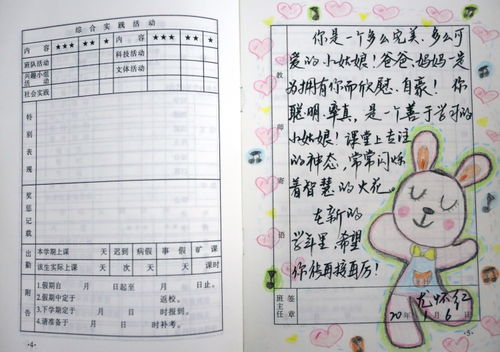 综合实践活动
内容 ★★★ ★★ ★ 内容 ★★★ ★★ ★
班队活动 科技活动
兴趣小组活动 文体活动
社会实践
特别表现
奖惩记载
出勤
本学期上课 天 迟到 病假 事假 旷课
该生实际上课 天 次 天 天 课时
附告
1.假期自 月 日起至 月 日止。
2.假期中定于 返校。
3.下学期定于 月 日 时报到。
4.请准备于 月 日 时补考。
·4·
教师寄语
你是一个多么完美、多么可
爱的小姑娘！爸爸、妈妈一定
为拥有你而欣慰、自豪！你
聪明、率真，是一个善于学习的
小姑娘！课堂上专注
的神态，常常闪烁
着智慧的火花。
在新的
学年里，希望
你能再接再厉！
班主任 签章
尤怀红
20 年 1 6
·5·